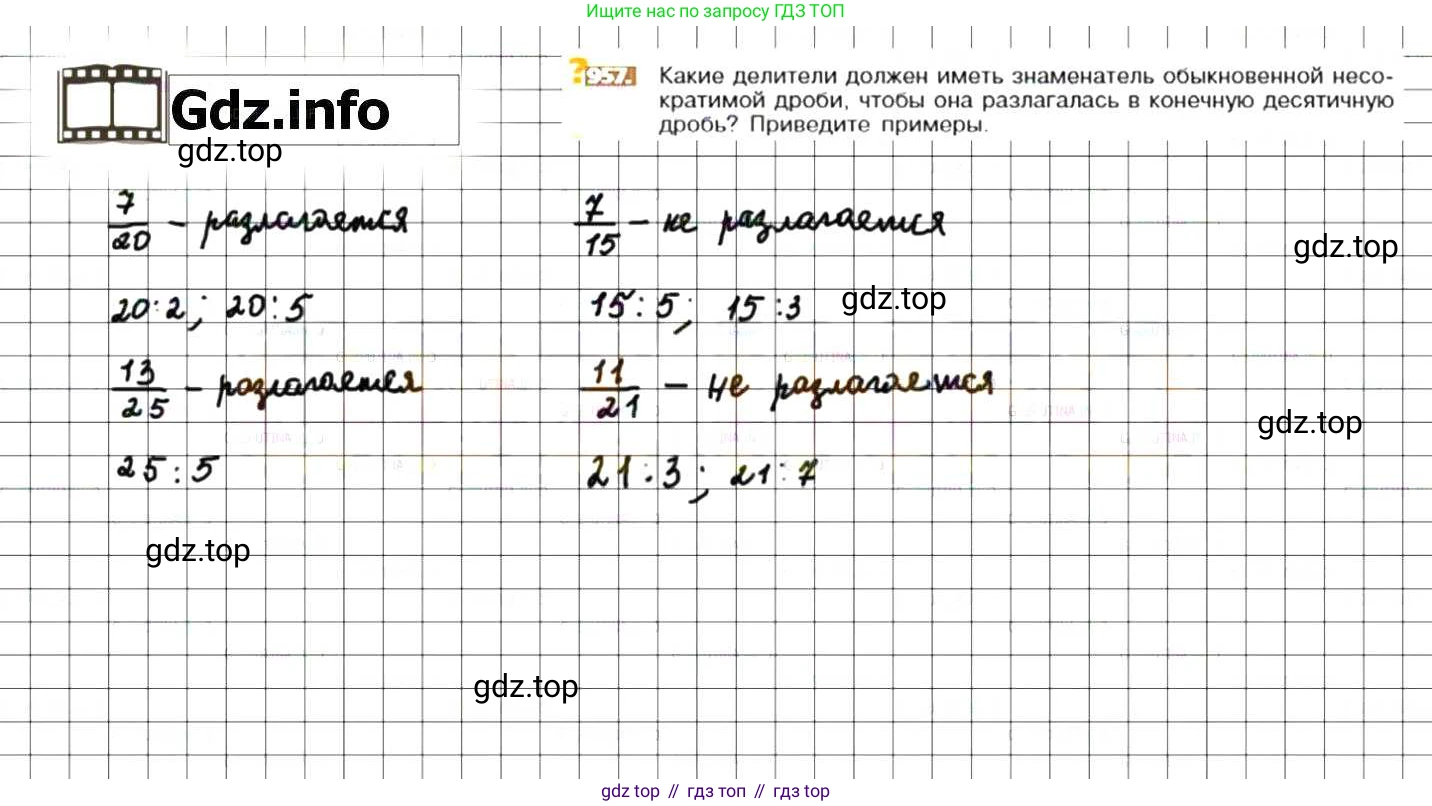 Ищите нас по запросу ГДЗ ТОП
Gdz.info
gdz.top
957. Какие делители должен иметь знаменатель обыкновенной несо-
кратимой дроби, чтобы она разлагалась в конечную десятичную
дробь? Приведите примеры.
7/20 – разлагается
7/15 – не разлагается
gdz.top
20:2; 20:5
15:5; 15:3
gdz.top
13/25 – разлагается
11/21 – не разлагается
gdz.top
25:5
21:3; 21:7
gdz.top
gdz.top
gdz top // гдз топ // гдз top